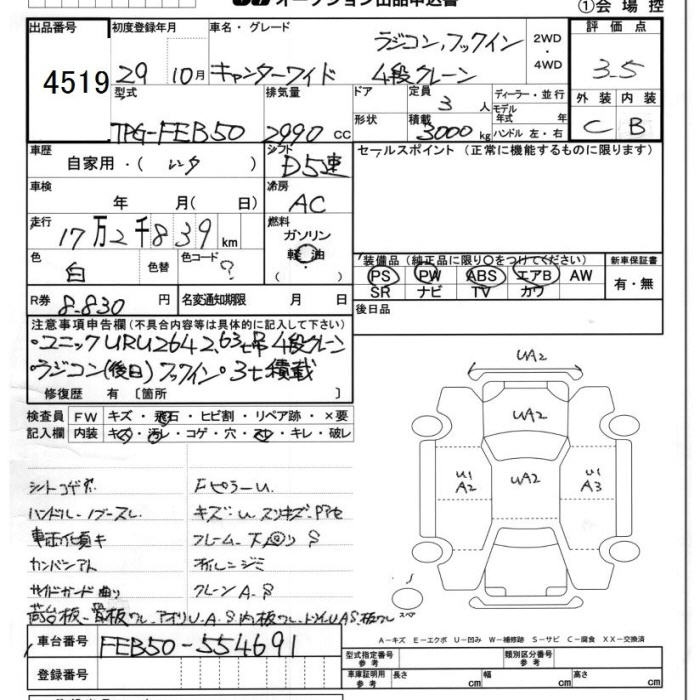 オークション出品申込書
①会場控
出品番号 4519
初度登録年月 29 10月
車名・グレード キャンターワイド ラジコン,フックイン 4段クレーン
2WD・4WD
評価点 3.5
外装 内装
C B
型式 TPG-FEB50
排気量 2990 CC
ドア 形状
定員 3 人
積載 3000 kg
ディーラー・並行
モデル年式 年
ハンドル 左・右
車歴 自家用・( レンタ )
シフト D5速
セールスポイント (正常に機能するものに限ります)
車検 年 月( 日)
冷房 AC
走行 17万2千839 km
燃料 ガソリン 軽油 ( )
色 白 色替 色コード ?
装備品(純正品に限り○をつけてください)
PS PW ABS エアB AW
SR ナビ TV カワ
新車保証書 有・無
R券 8.830 円
名変通知期限 月 日
後日品
注意事項申告欄(不具合内容等は具体的に記入して下さい)
・ユニックURU264 2,63t吊 4段クレーン
・ラジコン(後日)フックイン・3t積載
修復歴 有 〔箇所 〕
検査員 FW キズ・飛石・ヒビ割・リペア跡・×要
記入欄 内装 キズ・汚れ・コゲ・穴・スレ・キレ・破レ
UA2
UA2
U1 A2 UA2 U1 A3
スペア
シートコゲ穴 Fピラーu
ハンドル・ノブスレ キズ・u スリキズ・PPセ
車両傾キ フレーム・下回りS
カンバンアト
サイドガード曲り クレーンA.S
荷台板
A−キズ E−エクボ U−凹み W−補修跡 S−サビ C−腐食 XX−交換済
車台番号 FEB50-554691
型式指定番号 参考 類別区分番号 参考
登録番号
車庫証明用 参考 長さ cm 幅 cm 高さ cm